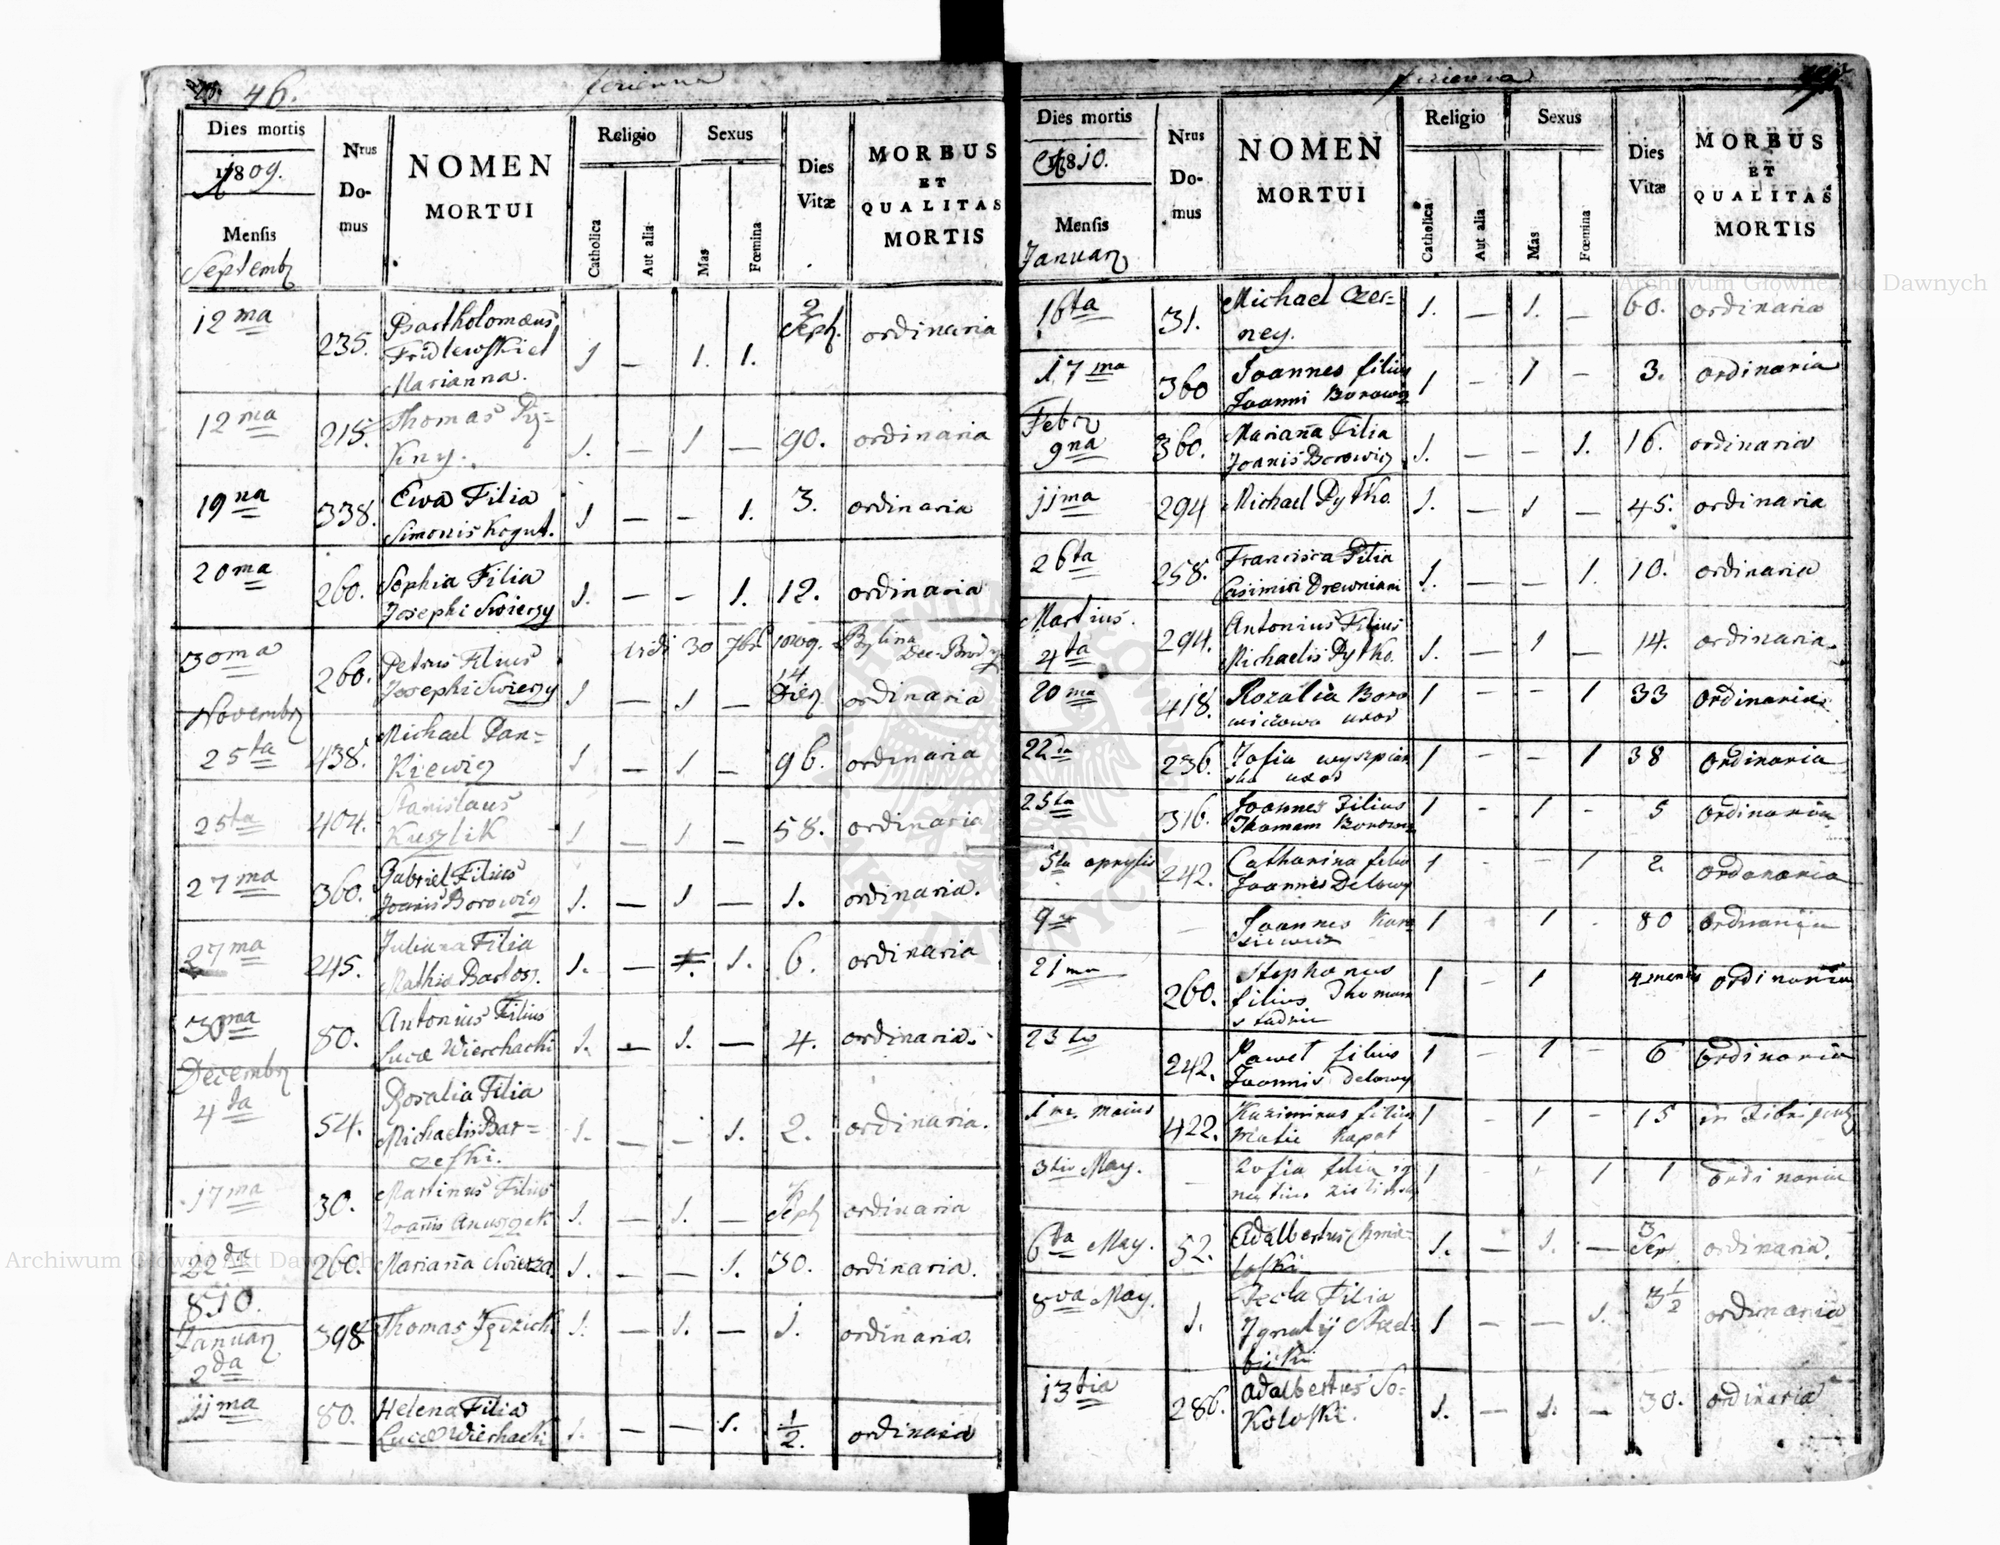 46.
Dies mortis
1809.
Mensis
Septembr
Nrus
Do-
mus
NOMEN
MORTUI
Religio
Catholica
Aut alia
Sexus
Mas
Fœmina
Dies
Vitæ
MORBUS
ET
QUALITAS
MORTIS
12ma 235. Bartholomæus 2 Sept. ordinaria
1 — 1. 1.
Marianna.
12ma 215. Thomas 1. — 1 — 90. ordinaria
19na 338. Ewa Filia 1 — — 1. 3. ordinaria
Simonis Kogut.
20ma 260. Sophia Filia 1. — — 1. 12. ordinaria
Josephi Swierzy
30ma 260. Petrus Filius 1 — 1 — 14 ordinaria
Josephi Swierzy
Novembr
25ta 438. Michael Pan= 1 — 1 — 96. ordinaria
Kiewicz
25ta 404. Stanislaus 1 — 1 — 58. ordinaria
Kuszlik
27ma 360. Gabriel Filius 1. — 1 — 1. ordinaria.
Joanis Borowicz
27ma 245. Juliana Filia 1. — 1. 6. ordinaria
Mathiæ Bartosz.
30ma 80. Antonius Filius 1. — 1. — 4. ordinaria.
Lucæ Wierchacki
Decembr
4ta 54. Rosalia Filia 1. — — 1. 2. ordinaria.
Michaelis Bar=
czeski.
17ma 30. Martinus Filius 1. — 1. — Sept ordinaria
Joanis
22da 260. Marianna Swierza. 1. — — 1. 30. ordinaria.
810.
Januar
2da 398 Thomas 1. — 1. — 1. ordinaria.
11ma 80. Helena Filia 1. — — 1. 1/2. ordinaria
Lucæ Wierchacki
Dies mortis
1810.
Mensis
Januar
Nrus
Do-
mus
NOMEN
MORTUI
Religio
Catholica
Aut alia
Sexus
Mas
Fœmina
Dies
Vitæ
MORBUS
ET
QUALITAS
MORTIS
16ta 31. Michael Czer= 1. — 1. — 60. ordinaria
ney.
17ma 360 Joannes filius 1 - 1 - 3. ordinaria
Joanni Borowicz
Febr
9na 360. Marianna Filia 1. — — 1. 16. ordinaria
Joanis Borowicz
11ma 294 Michael Pytko. 1. — 1 — 45. ordinaria
26ta 258. Francisca Filia 1. — — 1. 10. ordinaria
Casimiri Drewniani
Martius.
4ta 294. Antonius Filius 1. — 1 — 14. ordinaria.
Michaelis Pytko.
20ma 418. Rozalia Boro 1 - - 1 33 ordinaria
wiczowa uxor
22da 236. Zofia wyszpian 1 - - 1 38 ordinaria
ska uxor
25ta 316. Joannes Filius 1 - 1 - 5 ordinaria
Thomam Borowicz
5ta aprylis 242. Catharina filia 1 - - 1 2. ordonaria
Joannes Delowy
9na — Joannes 1 1 - 80 ordinaria
21ma 260. Stephanus 1 - 1 4 mensis ordinaria
filius Thomam
23tia 242. Pawel filius 1 - 1 - 6 ordinaria
Joannis Delowy
1ma maius 422. Kazimirus filius 1 - 1 - 15
Kapot
3tia May. - Zofia filia ig 1 - - 1 1 ordinaria
6ta May. 52. Adalbertus Chmie= 1. — 1. — 3 Sept. ordinaria.
8va May. 1. Tecla Filia 1 — — 1. 3 1/2 ordinaria
Ignatij
13tia 286. Adalbertus So= 1. — 1. — 30. ordinaria
Koloski.
Archiwum Główne Akt Dawnych
Archiwum Główne Akt Dawnych